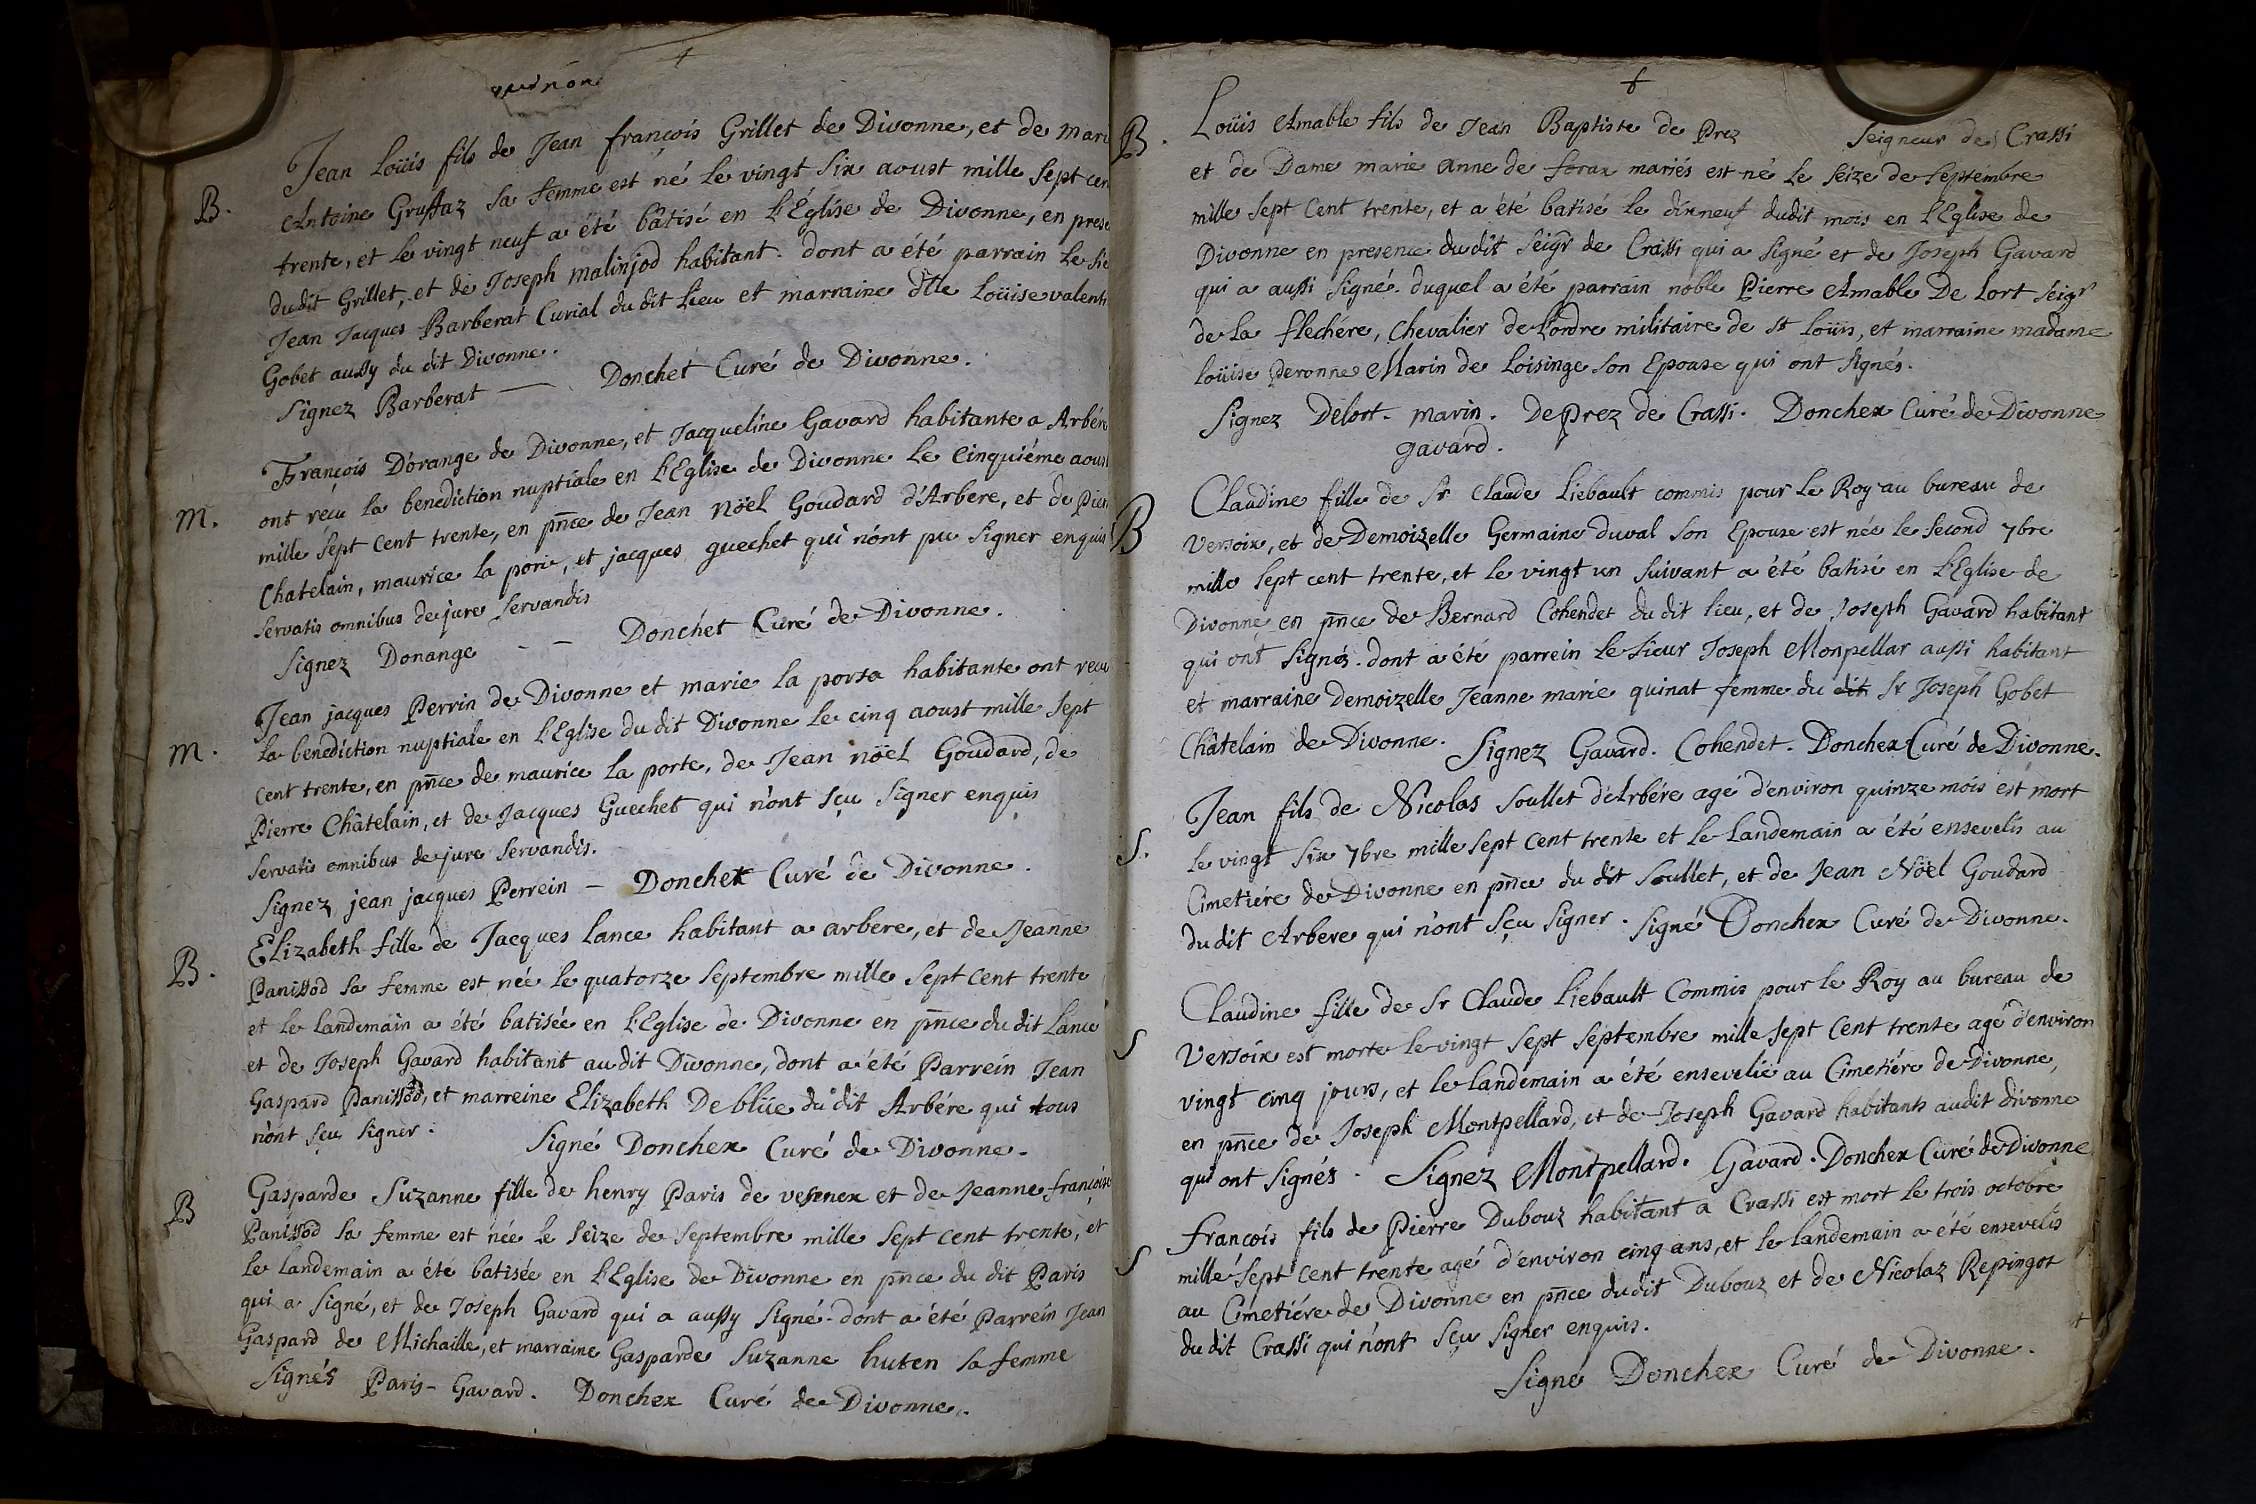 Jean Loüis fils de Jean françois Grillet de Divonne, et de Mari
B. Antoine Gruffaz sa femme est né le vingt six aoust mille sept cen
trente, et le vingt neuf a été bâtisé en L'Église de Divonne, en prese
dudit Grillet, et de Joseph malinjod habitant. dont a été parrain le Sie
Jean Jacques Barberat Curial du dit Lieu et marraine dlle Loüise valenti
Gobet aussy du dit Divonne.
Signez Barberat — Donchet Curé de Divonne.
François D'orange de Divonne, et Jacqueline Gavard habitante a Arbér
M. ont reçu la benediction nuptiale en L'Eglise de Divonne le Cinquiéme aoust
mille sept cent trente, en pñce de Jean Nöel Goudard d'Arbere, et de Pier
Chatelain, maurice la porie, et jacques guechet qui n'ont pu signer enquis
servatis omnibus de jure servandis
Signez Donange - - Donchet Curé de Divonne.
Jean jacques Perrin de Divonne et marie la porta habitante ont recu
M. la benediction nuptiale en L'Eglise du dit Divonne le cinq aoust mille sept
cent trente, en pñce de maurice la porte, de Jean nöel Goudard, de
Pierre Châtelain, et de Jacques Guechet qui n'ont sçu signer enquis
servatis omnibus de jure servandis.
Signez jean jacques Perrein — Donchet Curé de Divonne.
Elizabeth fille de Jacques Lance habitant a arbere, et de Jeanne
B. Panissod sa femme est née le quatorze septembre mille sept cent trente
et le landemain a été batisée en L'Eglise de Divonne en pñce du dit Lance
et de Joseph Gavard habitant audit Divonne, dont a été Parrein Jean
Gaspard Panissod, et marreine Elizabeth De blüe du dit Arbére qui tous
n'ont sçu signer. Signé Donchex Curé de Divonne.
B Gasparde Suzanne fille de henry Paris de vesenex et de Jeanne françoise
Panissod sa femme est née le seize de septembre mille sept cent trente, et
le landemain a été batisée en L'Eglise de Divonne en pñce du dit Paris
qui a signé, et de Joseph Gavard qui a aussy signé. dont a été Parrein Jean
Gaspard de Michaille, et marraine Gasparde Suzanne huten sa femme
Signés Paris - Gavard. Donchex Curé de Divonne.
B. Loüis Amable fils de Jean Baptiste de Prez Seigneur de Crassi
et de Dame marie Anne de forax mariés est né le seize de septembre
mille sept cent trente, et a été batisé le dixneuf dudit mois en l'Eglise de
Divonne en presence dudit seigr de Crassi qui a signé et de Joseph Gavard
qui a aussi signé. duquel a été parrain noble Pierre Amable De Lort seigr
de la flechére, chevalier de L'ordre militaire de st Loüis, et marraine madame
Loüise Peronne Marin de Loisinge son Epouse qui ont signés.
Signez Delort. marin. De Prez de Crassi. Donchex Curé de Divonne
gavard.
Claudine fille de Sr Claude Liebault commis pour le Roy au bureau de
B Versoix, et de Demoizelle Germaine duval son Epouse est née le second 7bre
mille sept cent trente, et le vingt un suivant a été batisé en L'Eglise de
Divonne en pñce de Bernard Cohendet du dit lieu, et de Joseph Gavard habitant
qui ont signés. dont a été parrein le sieur Joseph Monpellar aussi habitant
et marraine demoizelle Jeanne marie quinat femme du dit Sr Joseph Gobet
Châtelain de Divonne. Signez Gavard. Cohendet. Donchex Curé de Divonne.
Jean fils de Nicolas Soullet d'Arbére agé d'environ quinze mois est mort
S. le vingt six 7bre mille sept cent trente et le landemain a été ensevelis au
Cimetiére de Divonne en pñce du dit Soullet, et de Jean Nöel Goudard
du dit Arbere qui n'ont sçu signer. Signé Donchex Curé de Divonne.
Claudine fille de Sr Claude Liebault Commis pour le Roy au bureau de
S Versoix est morte le vingt sept septembre mille sept cent trente agé d'environ
vingt cinq jours, et le landemain a été ensevelie au Cimetiére de Divonne,
en pñce de Joseph Montpellard, et de Joseph Gavard habitants audit divonne
qui ont signés. Signez Montpellard. Gavard. Donchex Curé de Divonne
françois fils de Pierre Dubouz habitant a Crassi est mort le trois octobre
S mille sept cent trente agé d'environ cinq ans, et le landemain a été ensevelis
au Cimetiére de Divonne en pñce dudit Dubouz et de Nicolaz Repingot
du dit Crassi qui n'ont sçu signer enquis.
Signé Donchex Curé de Divonne.